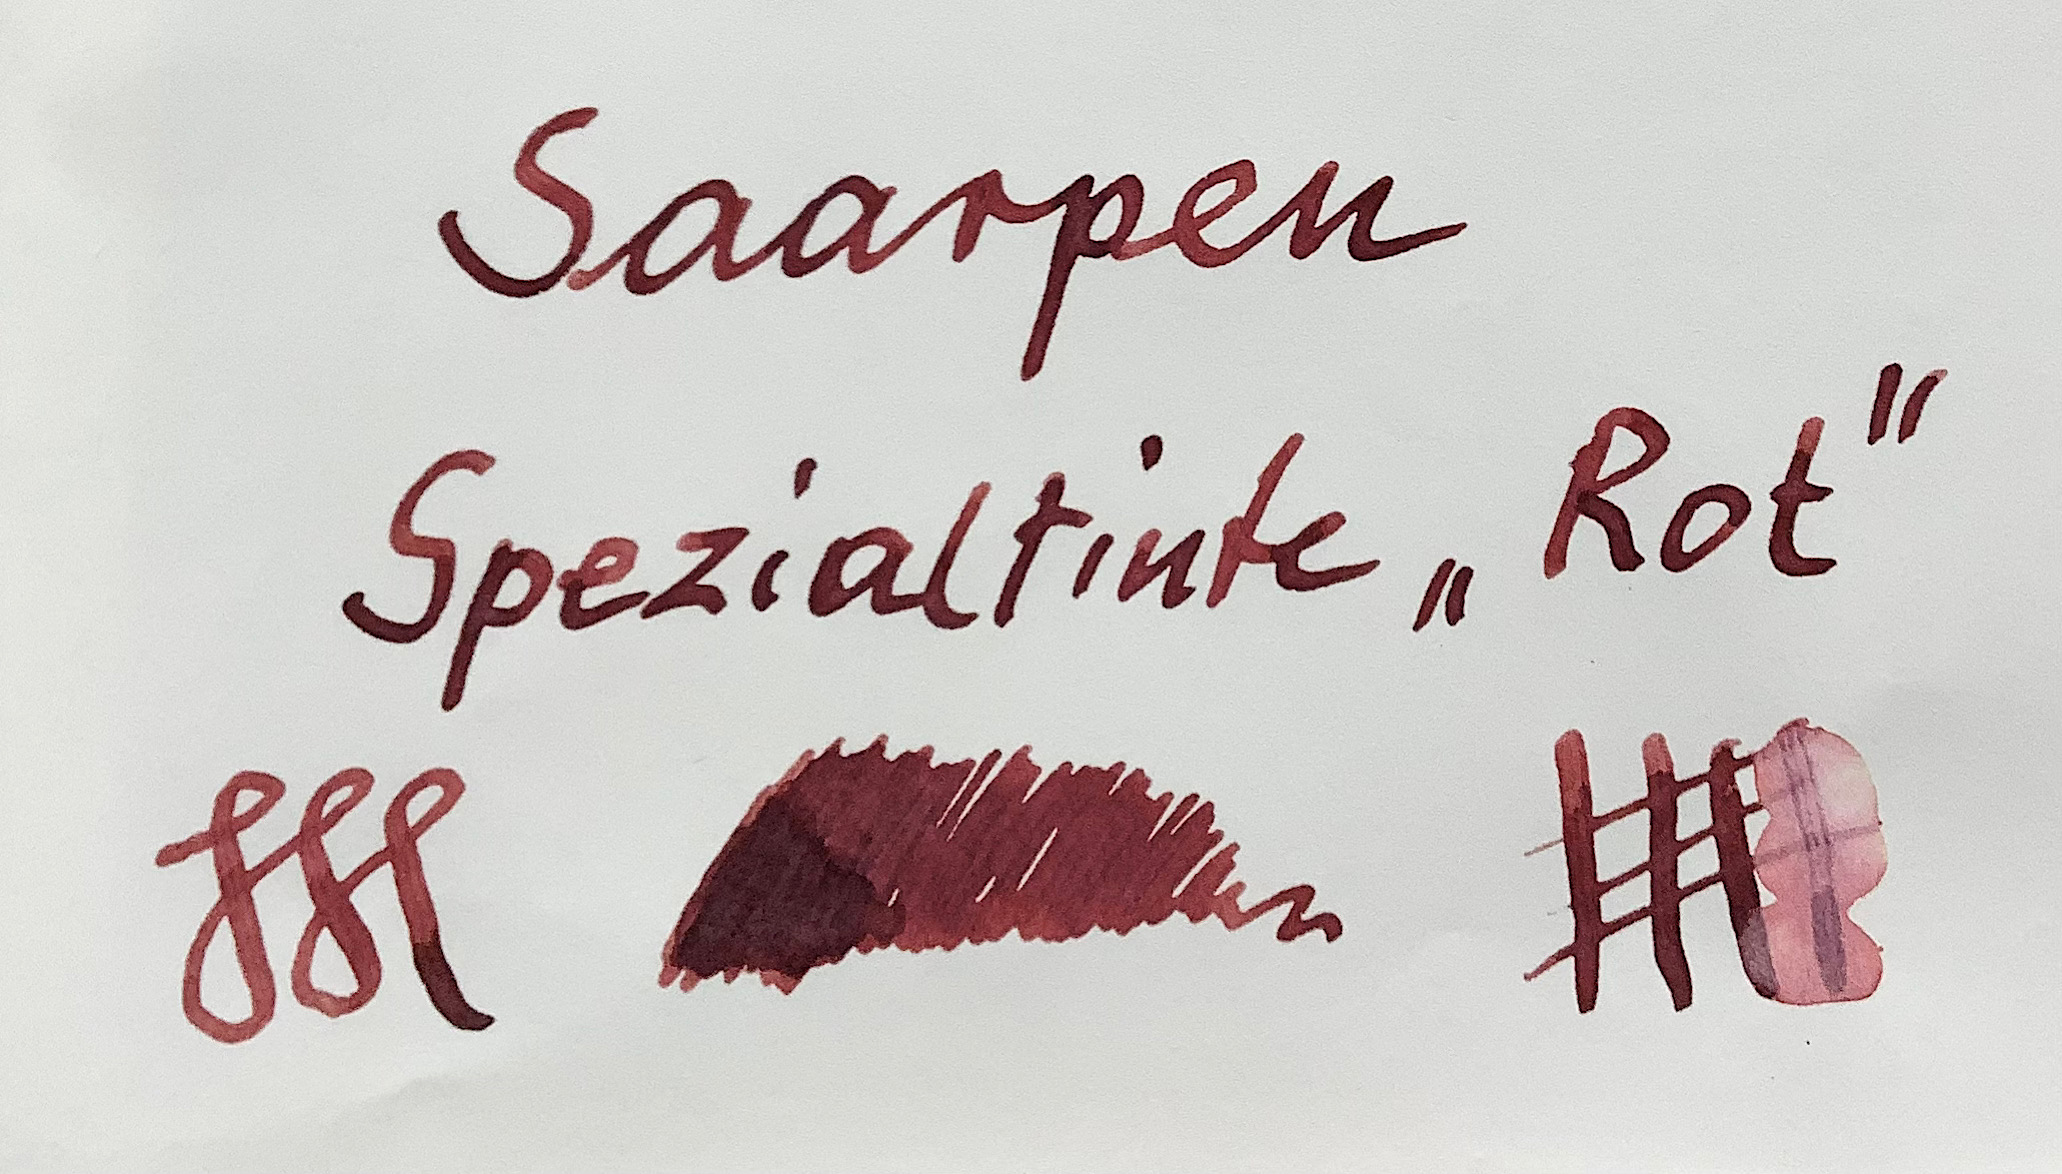 Saarpen
Spezialtinte „Rot"